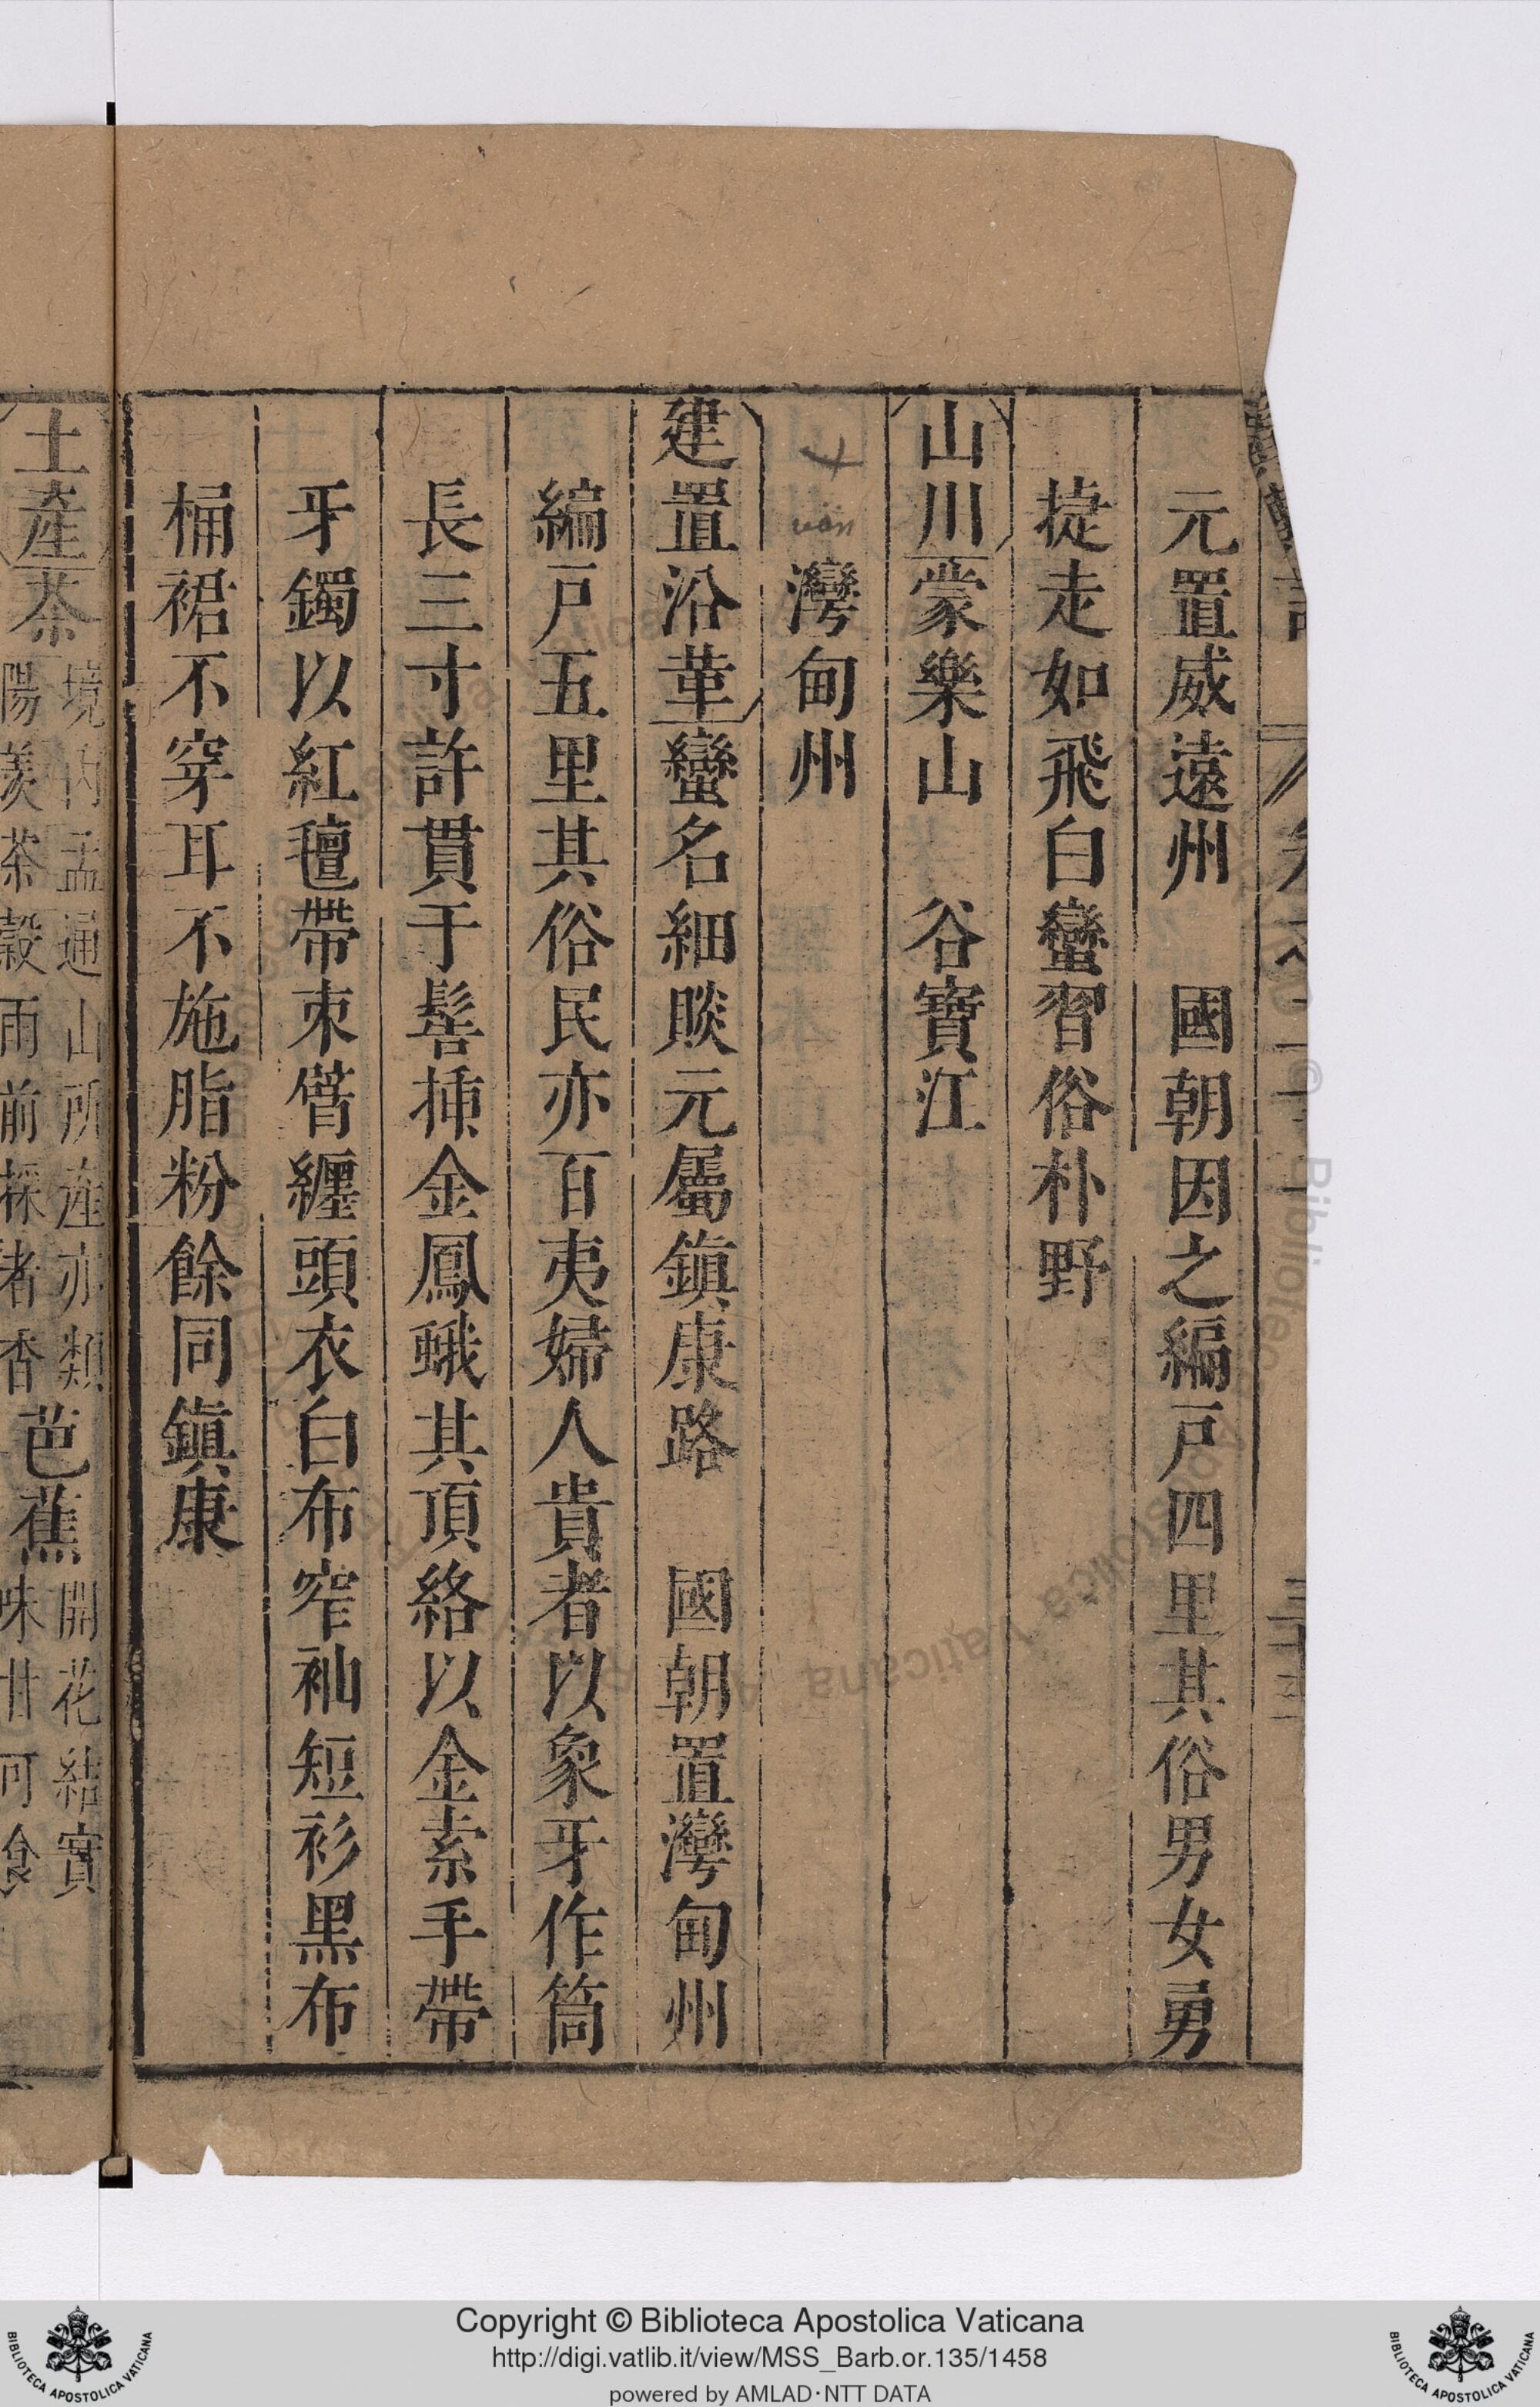 元置威遠州　國朝因之編戸四里其俗男女勇
捷走如飛白蠻習俗朴野
山川蒙樂山　谷寶江
uan
灣甸州
建置沿革蠻名細睒元屬鎮康路　國朝置灣甸州
編戸五里其俗民亦百夷婦人貴者以象牙作筒
長三寸許貫于髻挿金鳳蛾其頂絡以金索手帶
牙鐲以紅氊帶束臂纏頭衣白布窄袖短衫黑布
桶裙不穿耳不施脂粉餘同鎮康
土產茶
境內孟通山所產亦類
陽羡茶穀雨前採者香
芭蕉
開花結實
味甘可食
Copyright © Biblioteca Apostolica Vaticana
http://digi.vatlib.it/view/MSS_Barb.or.135/1458
powered by AMLAD·NTT DATA
BIBLIOTECA APOSTOLICA VATICANA
BIBLIOTECA APOSTOLICA VATICANA